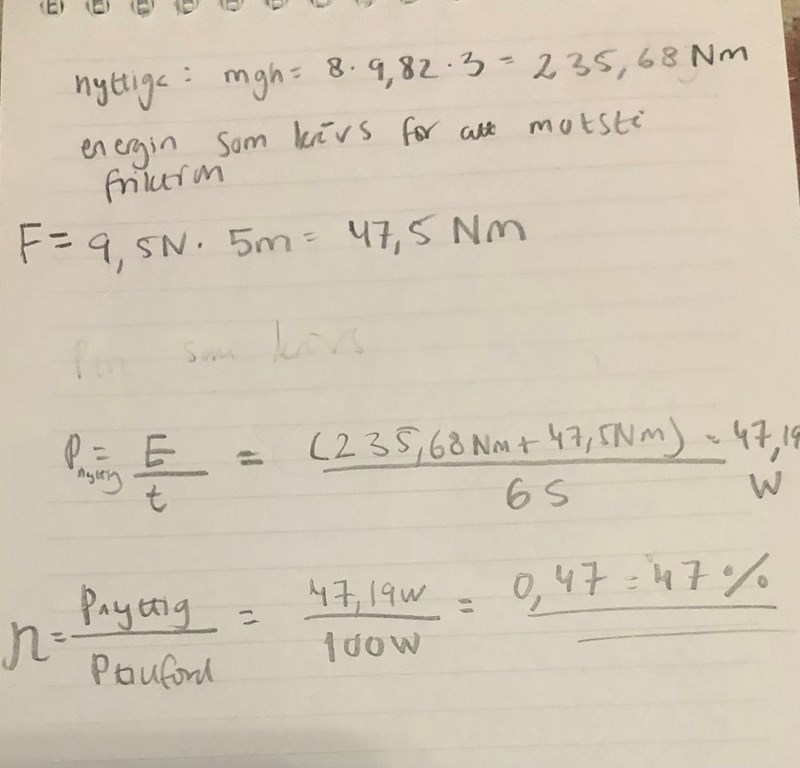 nyttige: mgh = 8 · 9,82 · 3 = 235,68 Nm
energin som krävs for att motstå
friktern
F = 9,5N · 5m = 47,5 Nm
som krävs
P nyttig = E/t = (235,68 Nm + 47,5Nm)/6 s = 47,19 W
η = Pnyttig/Ptillförd = 47,19W/100W = 0,47 = 47%